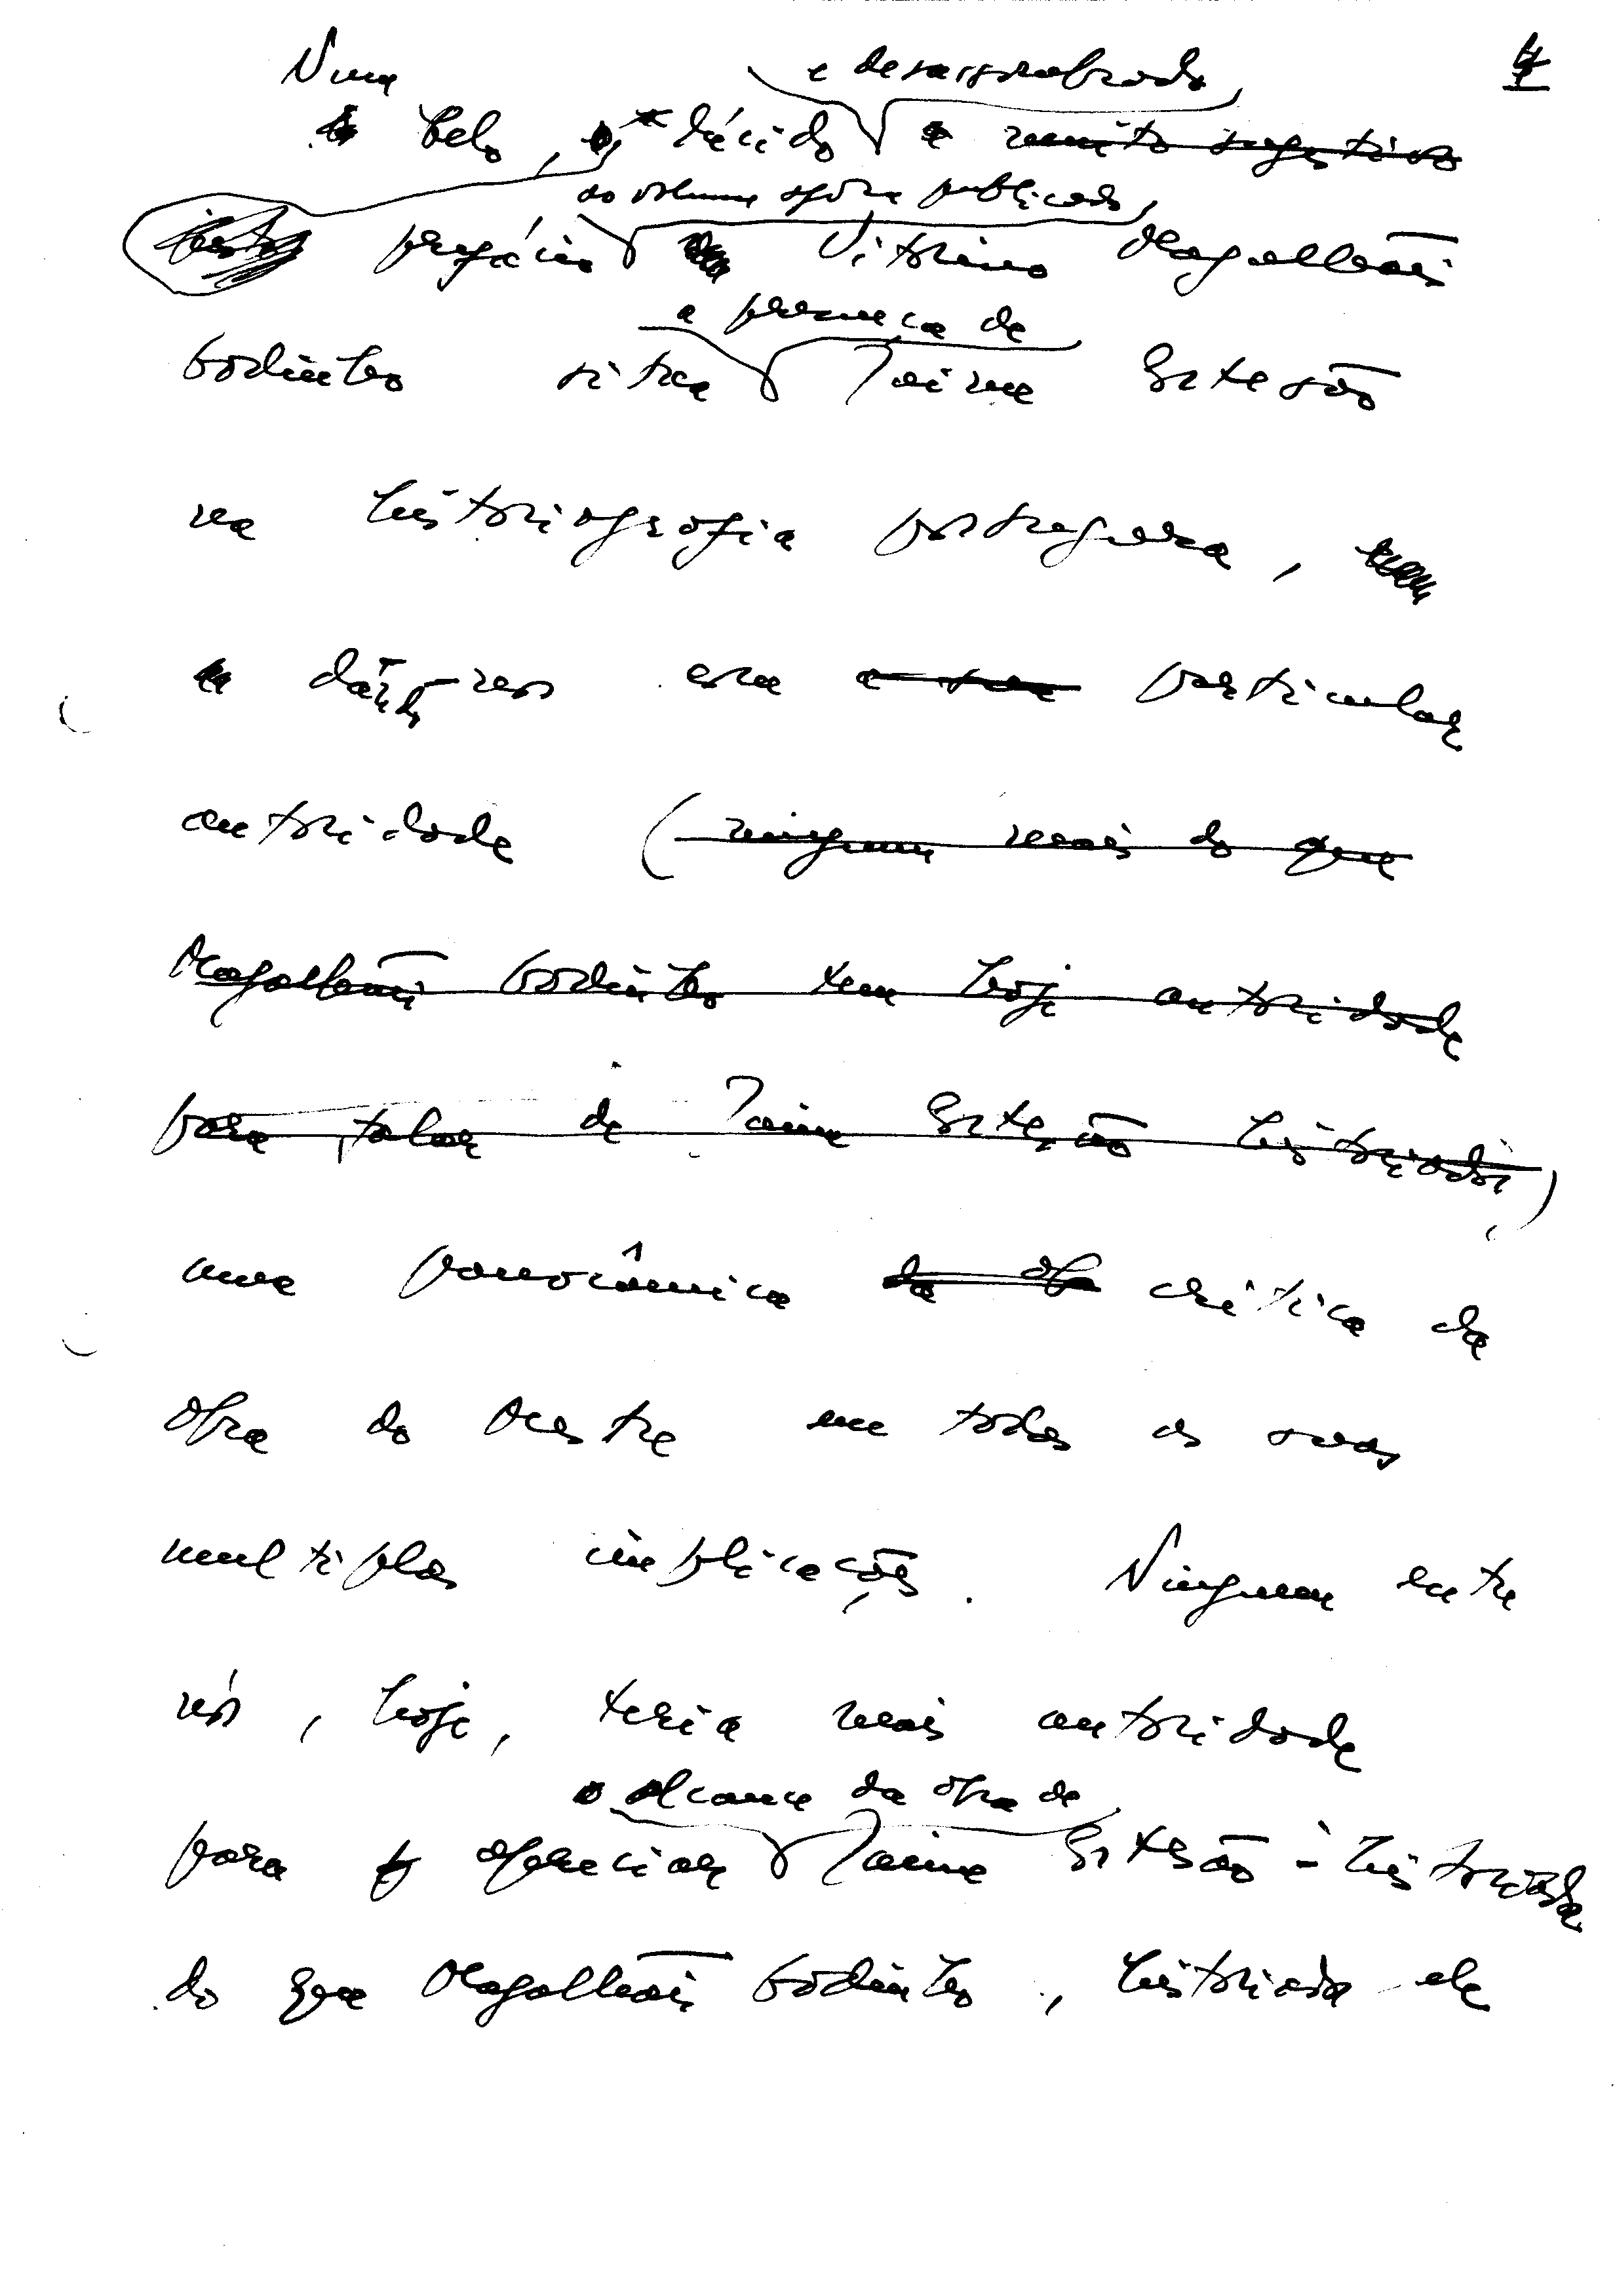 4
Num
e desassombrado
belo, lúcido e muito sugestivo
ao volume agora publicado,
prefácio Vitorino Magalhães
a presença de
Godinho situa Jaime Cortesão
na historiografia portuguesa,
dando-nos com a sua particular
autoridade (ninguem mais do que
Magalhães Godinho tem hoje autoridade
para falar de Jaime Cortesão historiador)
uma panorâmica da ob crítica da
obra do Mestre em todas as suas
multiplas implicações. Ninguem entre
nós, hoje, teria mais autoridade
o alcance da obra de
para apreciar Jaime Cortesão - historiador
do que Magalhães Godinho, historiador ele